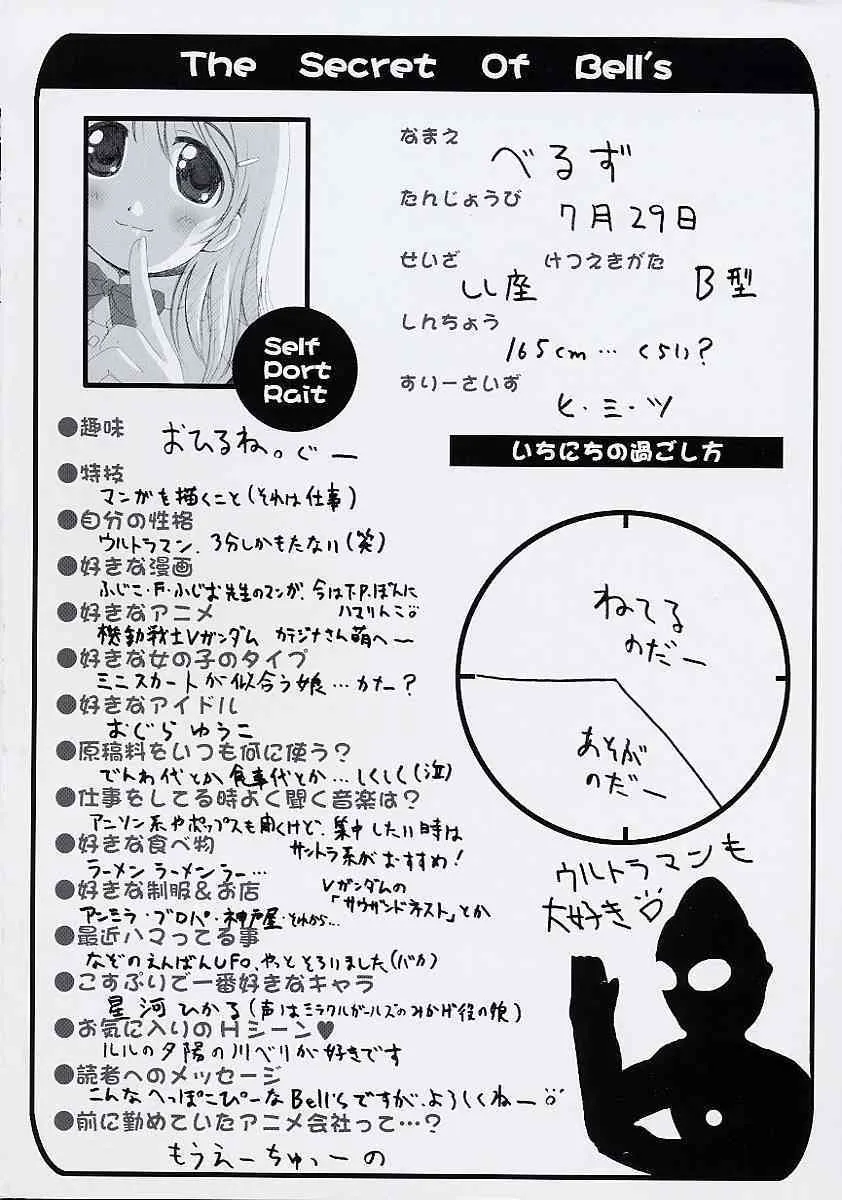 The Secret Of Bell's
Self
Port
Rait
なまえ
べるず
たんじょうび
7月29日
せいざ
しし座
けつえきがた
B型
しんちょう
165cm…くらい?
すりーさいず
ヒ・ミ・ツ
●趣味
おひるね。ぐー
●特技
マンガを描くこと(それは仕事)
●自分の性格
ウルトラマン、3分しかもたない(笑)
●好きな漫画
ふじこ・F・ふじお先生のマンガ、今はT.P.ぼんに
ハマりんこ
●好きなアニメ
機動戦士Vガンダム カテジナさん萌へー
●好きな女の子のタイプ
ミニスカートが似合う娘…かなー?
●好きなアイドル
おぐら ゆうこ
●原稿料をいつも何に使う?
でんわ代とか食事代とか…しくしく(泣)
●仕事をしてる時よく聞く音楽は?
アニソン系やポップスも聞くけど、集中したい時は
サントラ系がおすすめ!
Vガンダムの
「サウザンドネスト」とか
●好きな食べ物
ラーメン ラーメン ラー…
●好きな制服&お店
アンミラ・ブロパ・神戸屋・それから…
●最近ハマってる事
なぞのえんばんUFO、やっとそろいました(バカ)
●こすぷりで一番好きなキャラ
星河ひかる(声はミラクルガールズのみかげ役の娘)
●お気に入りのHシーン♥
ルルの夕陽の川べりが好きです
●読者へのメッセージ
こんなへっぽこぴーなBell'sですが、よろしくねー
●前に勤めていたアニメ会社って…?
もうえーちゅーの
いちにちの過ごし方
ねてる
のだー
あそぶ
のだー
ウルトラマンも
大好き♡